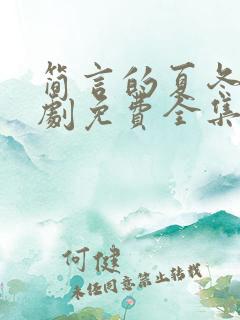 简言的夏冬
劇免費全集
何健
未经同意禁止转载